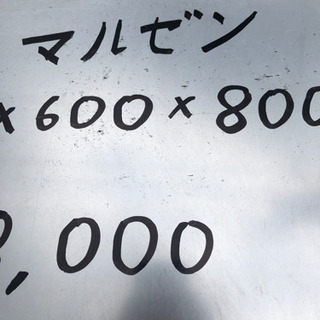 マルゼン
×600×800
,000